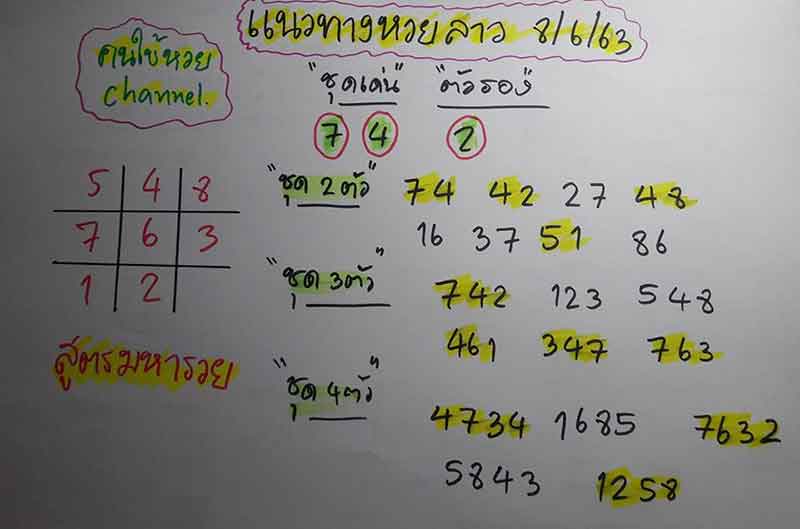 แนวทางหวยลาว 8/6/63
คนใช้หวย
channel.
"ชุดเด่น" "ตัวรอง"
7 4 2
5 4 8
7 6 3
1 2
สูตรมหารวย
"ชุด 2ตัว" 74 42 27 48
16 37 51 86
"ชุด 3ตัว" 742 123 548
461 347 763
"ชุด 4ตัว" 4734 1685 7632
5843 1258